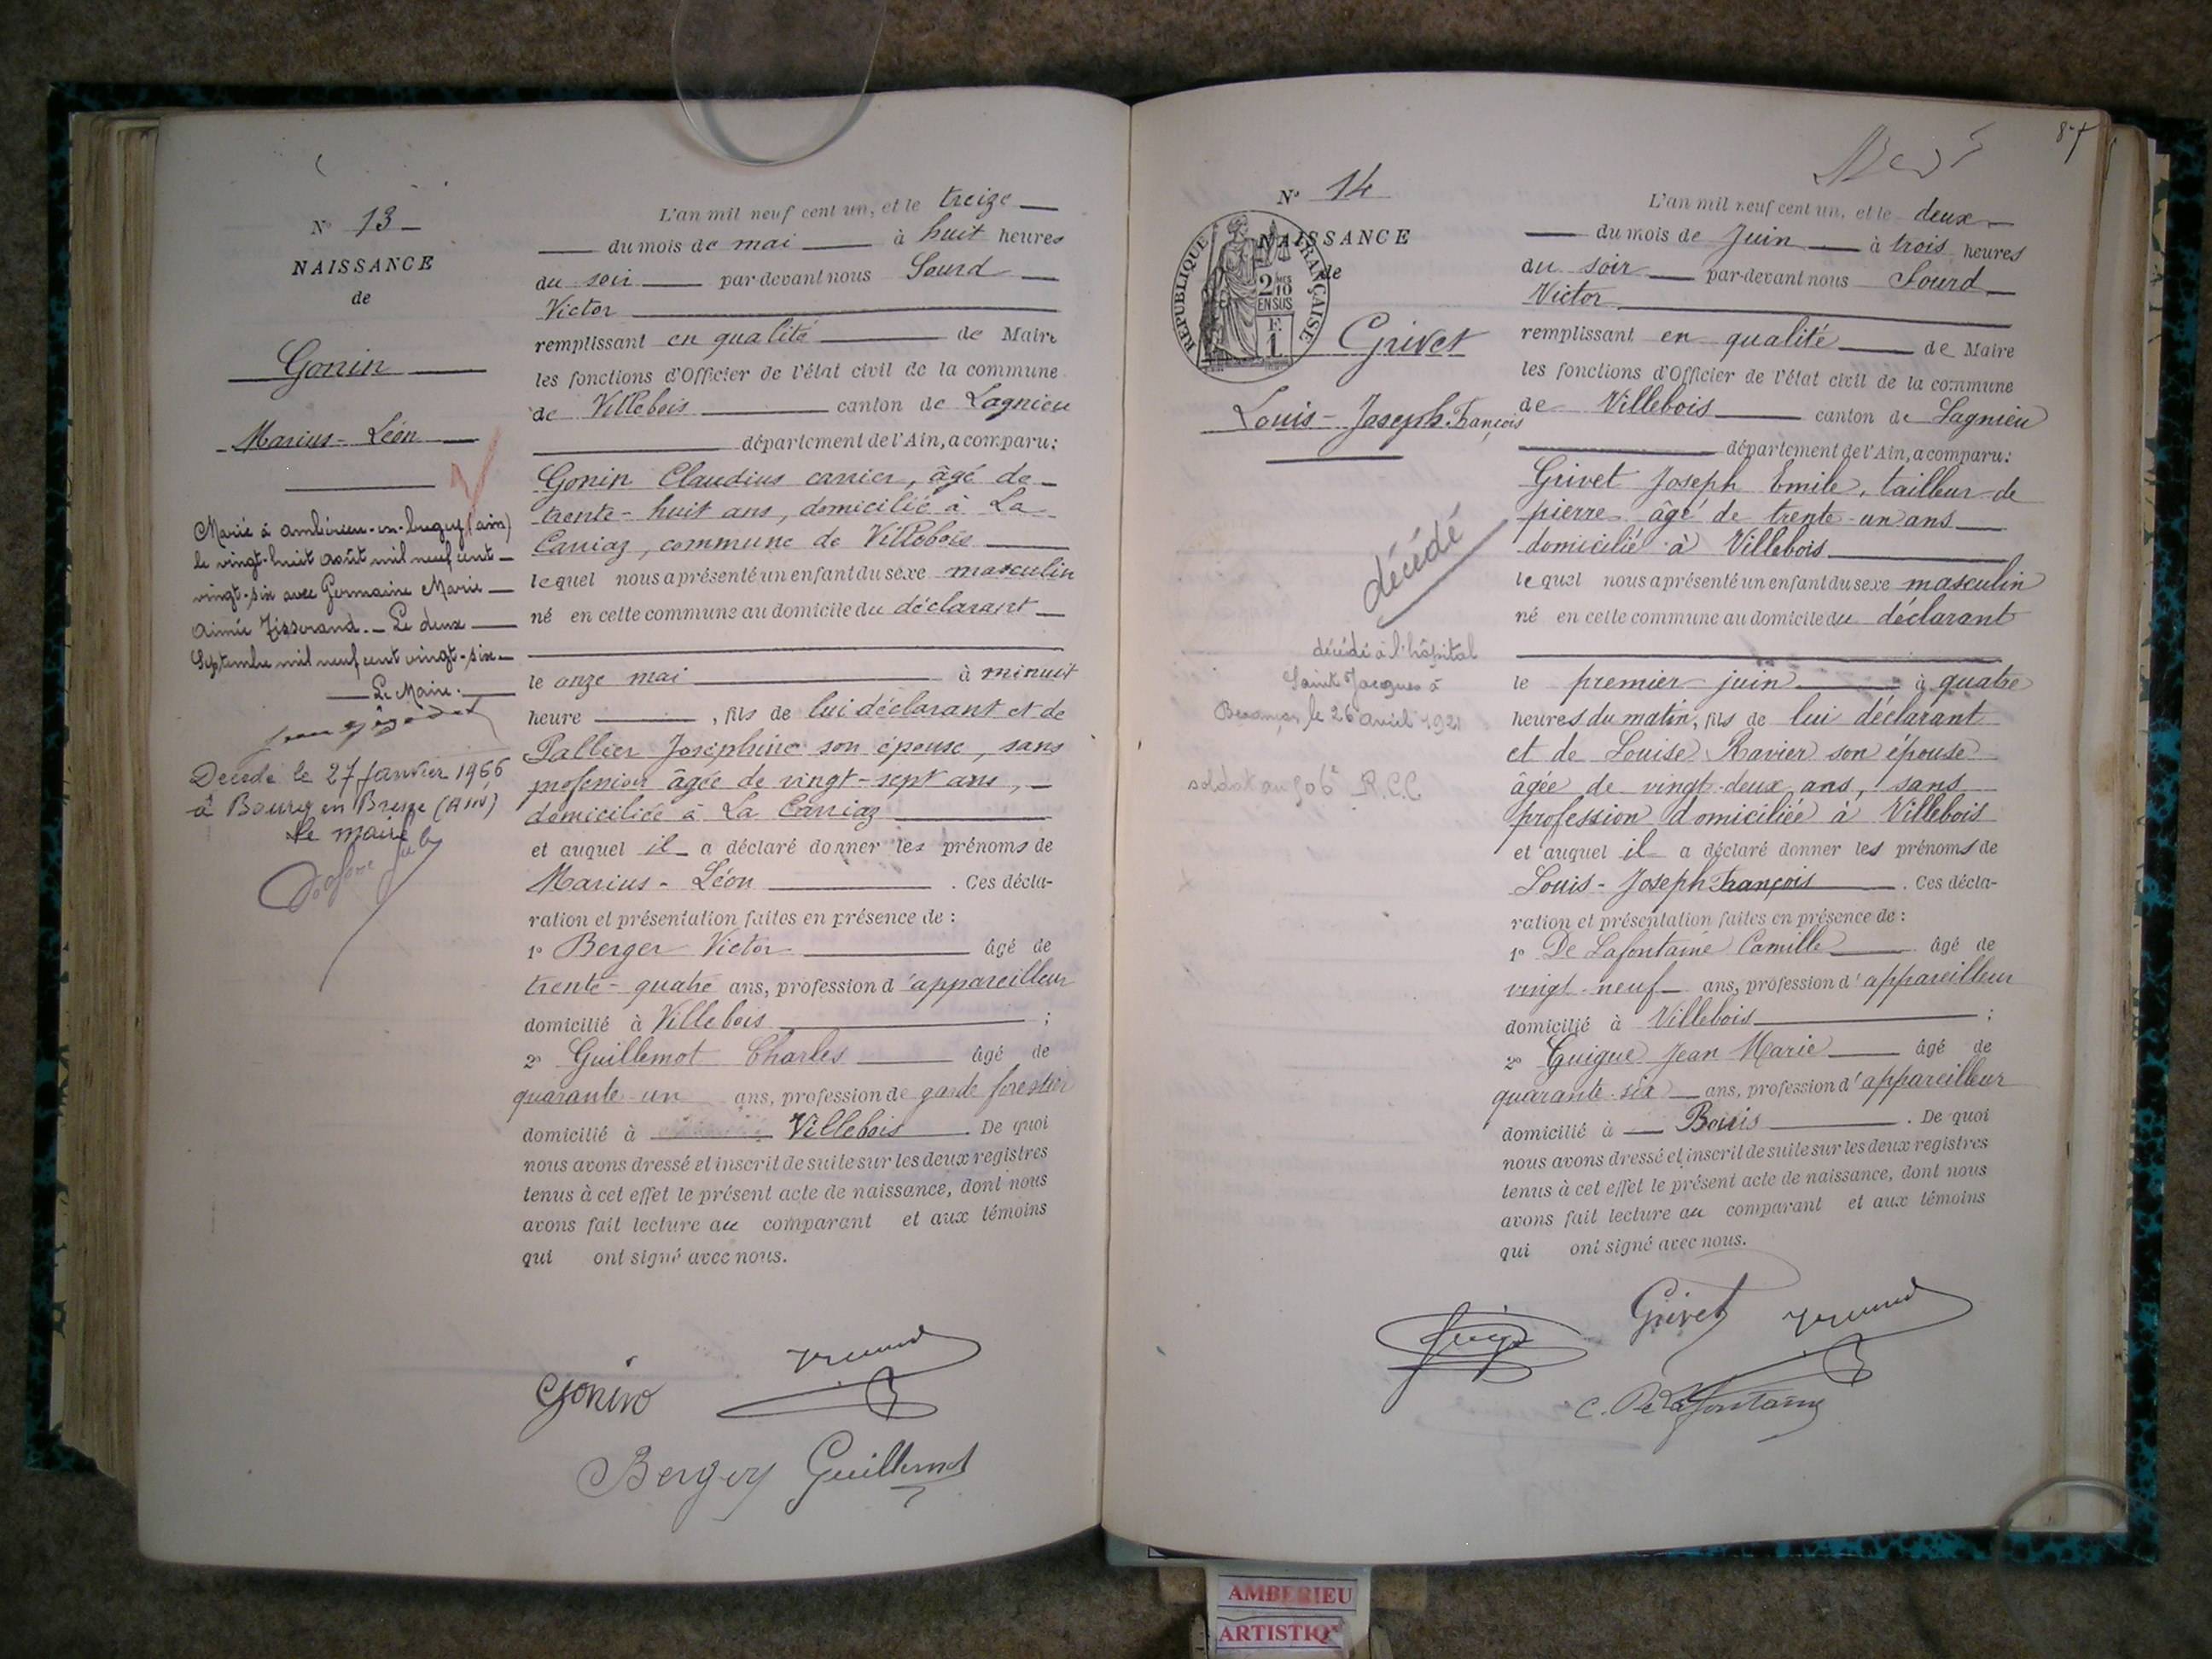 N° 13
NAISSANCE
de
Gonin
Marius-Léon
Marié à Ambérieu-en-bugey (ain)
le vingt-huit août mil neuf cent
vingt-six avec Germaine Marie
Aimée Tisserand. - Le deux
Septembre mil neuf cent vingt-six
Le Maire.
Décédé le 27 janvier 1966
à Bourg en Bresse (Ain)
Le maire
L'an mil neuf cent un, et le treize
du mois de mai à huit heures
du soir par-devant nous Sourd
Victor
remplissant en qualité de Maire
les fonctions d'Officier de l'état civil de la commune
de Villebois canton de Lagnieu
département de l'Ain, a comparu:
Gonin Claudius carrier, âgé de
trente-huit ans, domicilié à La
Carriaz, commune de Villebois
lequel nous a présenté un enfant du sexe masculin
né en cette commune au domicile du déclarant
le onze mai à minuit
heure , fils de lui déclarant et de
Pallier Joséphine son épouse, sans
profession âgée de vingt-sept ans,
domiciliée à La Carriaz
et auquel il a déclaré donner les prénoms de
Marius-Léon . Ces décla-
ration et présentation faites en présence de :
1° Berger Victor âgé de
trente-quatre ans, profession d'appareilleur
domicilié à Villebois ;
2° Guillemot Charles âgé de
quarante-un ans, profession de garde forestier
domicilié à Villebois . De quoi
nous avons dressé et inscrit de suite sur les deux registres
tenus à cet effet le présent acte de naissance, dont nous
avons fait lecture au comparant et aux témoins
qui ont signé avec nous.
Gonin
Berger Guillemot
87
N° 14
NAISSANCE
de
RÉPUBLIQUE FRANÇAISE
2 MES
10
EN SUS
F.
1
Grivet
Louis-Joseph-François
décédé
décédé à l'hôpital
Saint Jacques à
Besançon le 26 avril 1921
soldat au 506e R.C.C
L'an mil neuf cent un, et le deux
du mois de Juin à trois heures
du soir par-devant nous Sourd
Victor
remplissant en qualité de Maire
les fonctions d'Officier de l'état civil de la commune
de Villebois canton de Lagnieu
département de l'Ain, a comparu:
Grivet Joseph Emile, tailleur de
pierre âgé de trente-un ans
domicilié à Villebois
lequel nous a présenté un enfant du sexe masculin
né en cette commune au domicile du déclarant
le premier juin à quatre
heures du matin, fils de lui déclarant
et de Louise Ravier son épouse
âgée de vingt-deux ans, sans
profession domiciliée à Villebois
et auquel il a déclaré donner les prénoms de
Louis-Joseph François . Ces décla-
ration et présentation faites en présence de :
1° De Lafontaine Camille âgé de
vingt-neuf ans, profession d'appareilleur
domicilié à Villebois ;
2° Guigue Jean Marie âgé de
quarante-six ans, profession d'appareilleur
domicilié à Bouis . De quoi
nous avons dressé et inscrit de suite sur les deux registres
tenus à cet effet le présent acte de naissance, dont nous
avons fait lecture au comparant et aux témoins
qui ont signé avec nous.
Grivet
C. De Lafontaine
AMBERIEU
ARTISTIQ